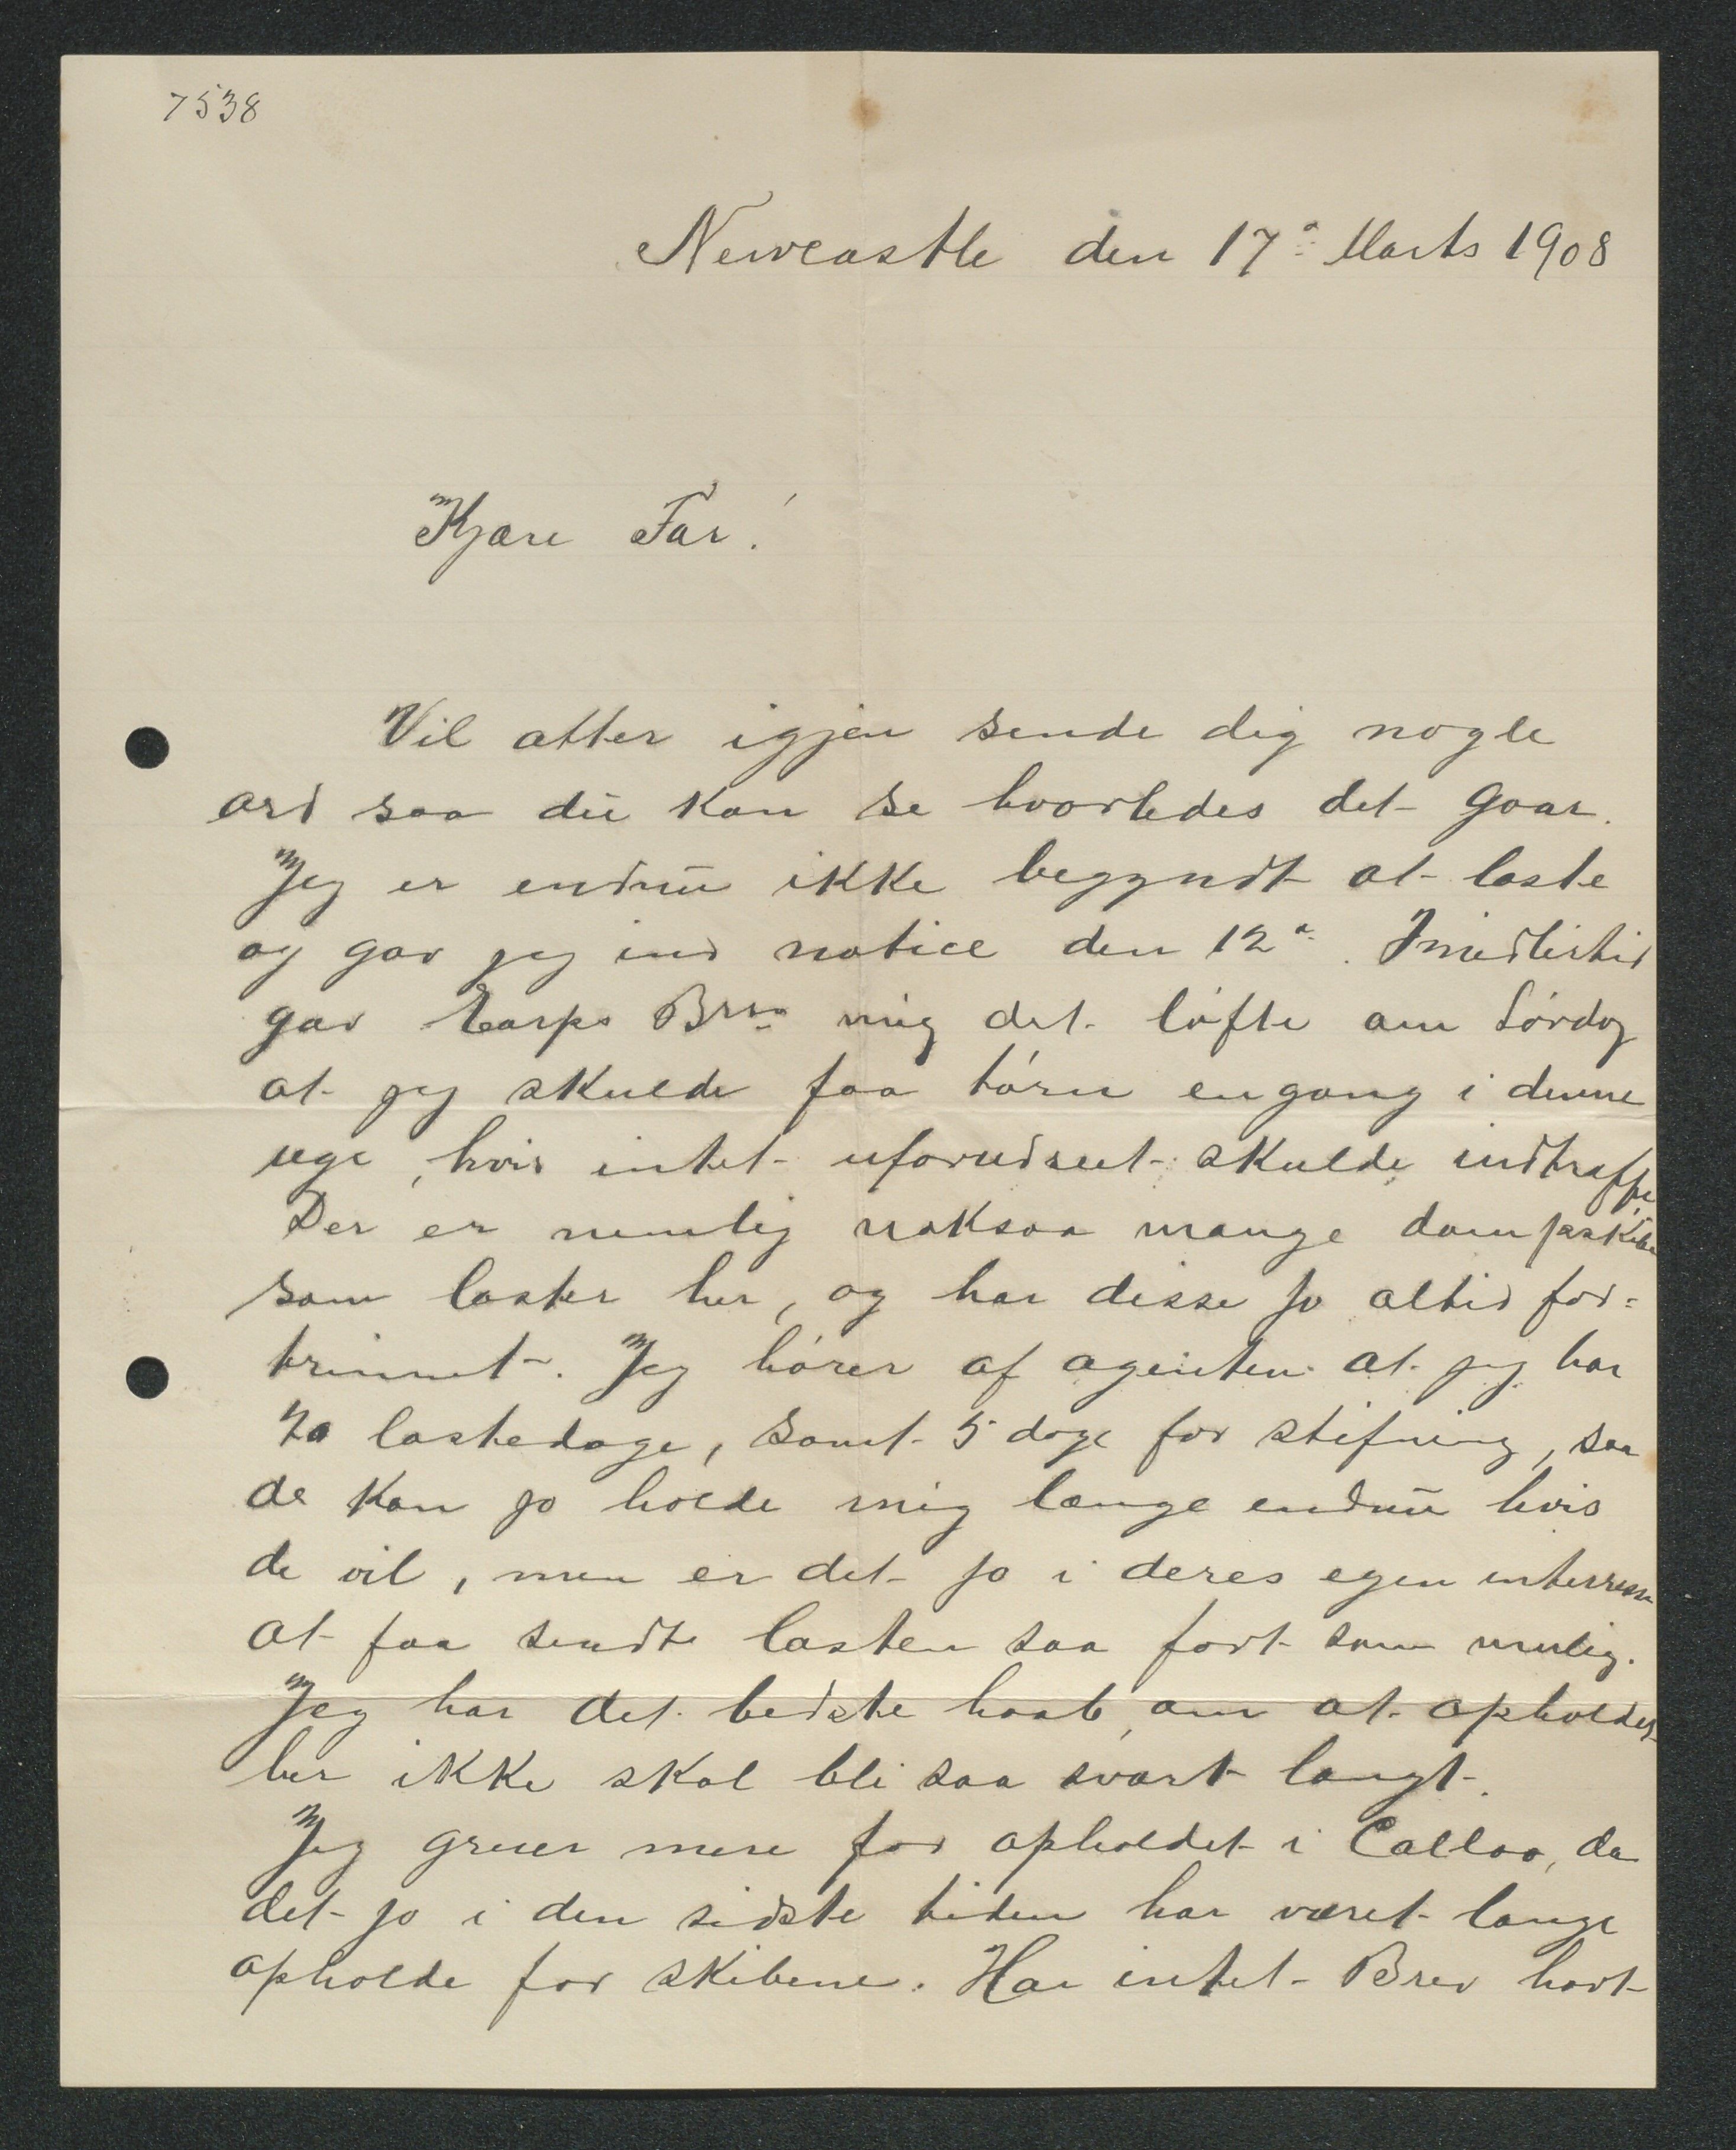 7538
Newcastle den 17de Marts 1908
Kjære Far!
Vil atter igjen sende dig nogle
ord saa du kan se hvorledes det gaar.
Jeg er endnu ikke begyndt at laste
og gav jeg ind notice den 12te. Imidlertid
gav Earps Bros mig det løfte om Lørdag
at jeg skulde faa tørn engang i denne
uge, hvis intet uforudseet skulde indtræffe
Der er nemlig noksaa mange dampskibe
som laster her, og har disse jo altid for=
trinnet. Jeg hører af agenten at jeg har
lastedage, samt 5 dage for stifning, saa
de kan jo holde mig længe endnu hvis
de vil, men er det jo i deres egen interresse
at faa sendt lasten saa fort som mulig.
Jeg har det bedste haab om at opholdet
her ikke skal bli saa svært langt.
Jeg gruer mere for opholdet i Callao, da
det jo i den sidste tiden har været lange
opholde for skibene. Har intet Brev havt